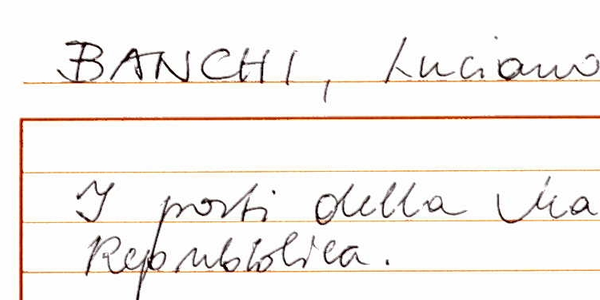 BANCHI, Luciano
I porti della Ma
Repubblica.